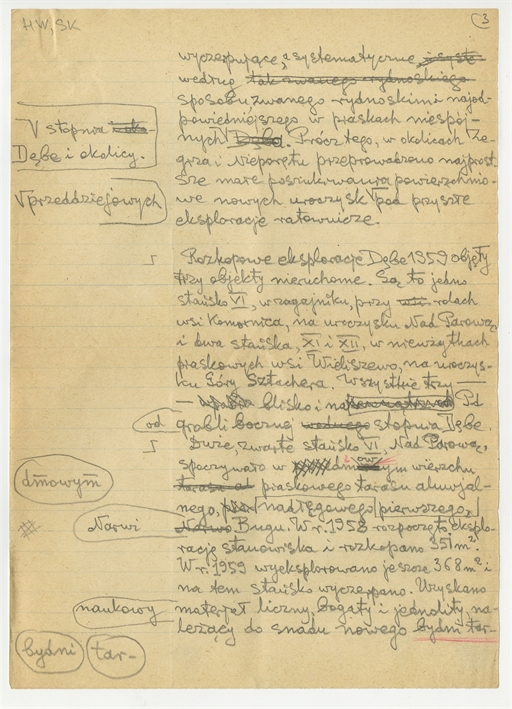 HW, SK
3
wyczerpujące, systematyczne,
według tak zwanego rydnoskiego
sposobu zwanego rydnoskim i najod-
powiedniejszego w piaskach niespój-
nych Dęba. Prócz tego, w okolicach Ze-
grza i Nieporętu przeprowadzono najprost
sze małe poszukiwania powierzchnio-
we nowych uroczysk pod przyszłe
eksploracje ratownicze.
V stopnia
Dębe i okolicy.
V przeddziejowych
Rozkopowe eksploracje Dębe 1959 objęły
trzy objekty nieruchome. Są to jedno
stańsko VI, w zagajniku, przy wsi rolach
wsi Komornica, na uroczysku Nad Parową,
i dwa stańska, XI i XII, w nieużytkach
piaskowych wsi Wieliszewo, na uroczys-
ku Góry Sztachera. Wszystkie trzy
— blisko i na Pd
od
grobli bocznej według stopnia Dębe.
Duże, zwarte stańsko VI, Nad Parową,
spoczywało w dmowym wierzchu
dmowym
tarasa al piaskowego tarasu aluwjal-
nego, nadłęgowego pierwszego,
Narwi
Narwo Bugu. W r. 1958 rozpoczęto eksplo-
rację stanowiska i rozkopano 351 m².
W r. 1959 wyeksplorowano jeszcze 368 m² i
na tem stańsko wyczerpano. Uzyskano
naukowy
materjał liczny, bogaty i jednolity, na-
leżący do śnadu nowego bydni tar-
bydni tar-